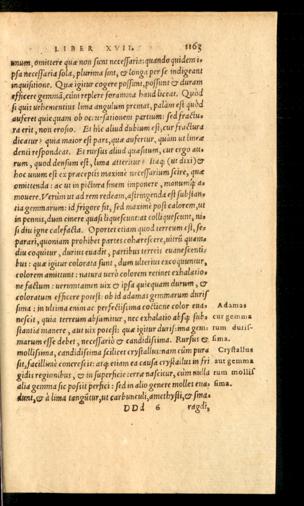 LIBER XVII. 1163
unum, omittere quæ non sunt necessaria: quando quidem i-
psa necessaria sola, plurima sunt, & longa per se indigent
inquisitione. Quæ igitur cogere possunt, possunt & duram
efficere gemmã, cùm replere foramina haud liceat. Quòd
si quis uehementius lima angulum premat, palàm est quòd
auferet quicquam ob occursationem partium: sed fractu-
ra erit, non erosio. Et hîc aliud dubium est, cur fractura
dicatur: quia maior est pars, quæ aufertur, quàm ut lineæ
denti respondeat. Et rursus aliud quæsitum, cur ergo au-
rum, quod densum est, lima atteritur? Itaq; (ut dixi) &
hoc unum est ex præceptis maximè necessarium scire, quæ
omittenda: ac ut in pictura finem imponere, manumq́; a-
mouere. Verùm ut ad rem redeam, astringenda est substan-
tia gemmarum: id frigore fit, sed maximè post calorem, ut
in pennis, dum cinere quasi liquescunt: at colliquescunt, ni-
si diu igne calefacta. Oportet etiam quod terreum est, se-
parari, quoniam prohibet partes cohærescere, uitrũ quam-
diu coquitur, durius euadit, partibus terreis euanescenti-
bus: quæ igitur colorata sunt, dum ulterius excoquuntur,
colorem amittunt: natura uerò colorem retinet exhalatio-
ne factum: ueruntamen uix & ipsa quicquam durum, &
coloratum efficere potest: ob id adamas gemmarum duris-
sima: in ultima enim ac perfectissima coctione color eua-
nescit, quia terreum absumitur, nec exhalatio absq; subs-
stantia manere, aut uix potest: quæ igitur durissima gem-
marum esse debet, necessariò & candidissima. Rursus &
mollissima, candidissima scilicet crystallus: nam cùm pura
sit, facillimè concrescit: atq; etiam ea causa crystallus in fri
gidis regionibus, & in superficie terræ nascitur, cùm nulla
alia gemma sic possit perfici: sed in alio genere molles eua-
dunt, & à lima tangũtur, ut carbunculi, amethysti, & sma-
Adamas
cur gemma
rum duris-
sima.
Crystallus
aut gemma
rum mollis
sima.
DDd 6 ragdi,